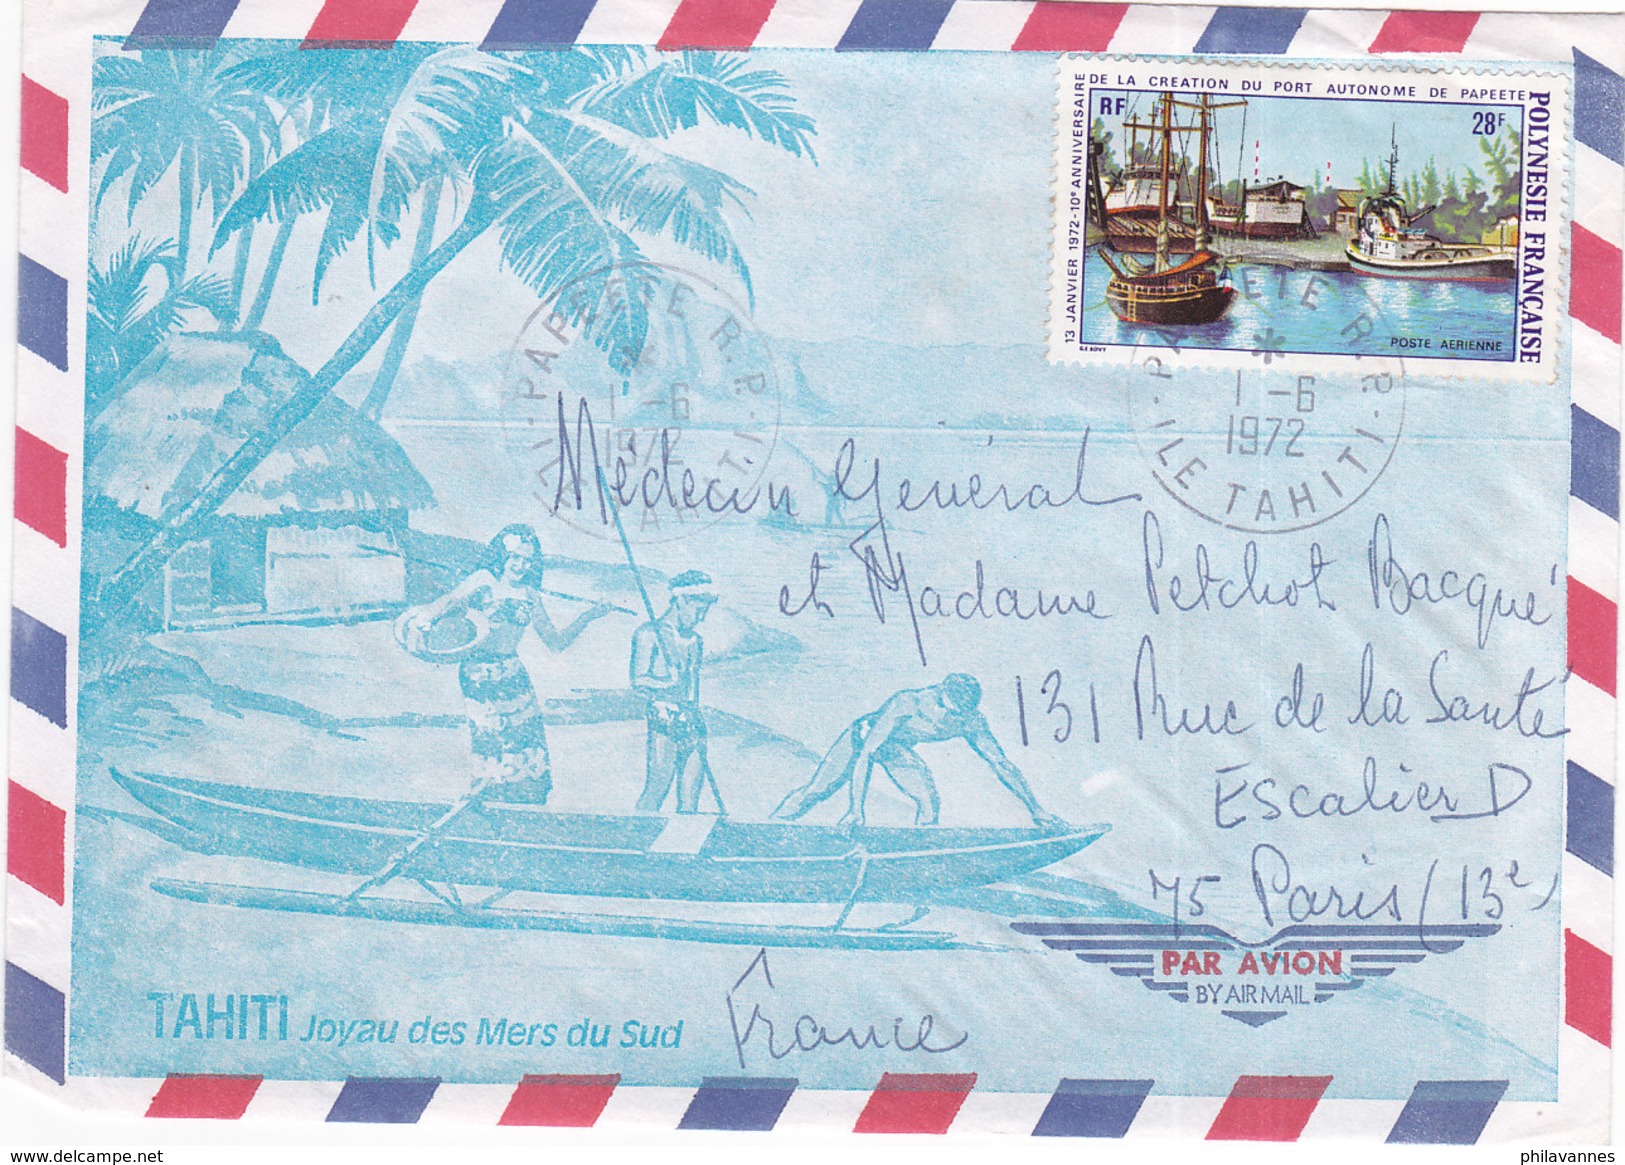 13 JANVIER 1972-10e ANNIVERSAIRE DE LA CREATION DU PORT AUTONOME DE PAPEETE
RF
28F
POLYNESIE FRANÇAISE
POSTE AERIENNE
G.E BOVY
PAPEETE R.P.
1 -6
1972
ILE TAHITI
PAPEETE R.P.
1 -6
1972
ILE TAHITI
Médecin Général
et Madame Petchot Bacqué
131 Rue de la Santé
Escalier D
75 Paris (13e)
France
PAR AVION
BY AIR MAIL
TAHITI Joyau des Mers du Sud
delcampe.net
philavannes